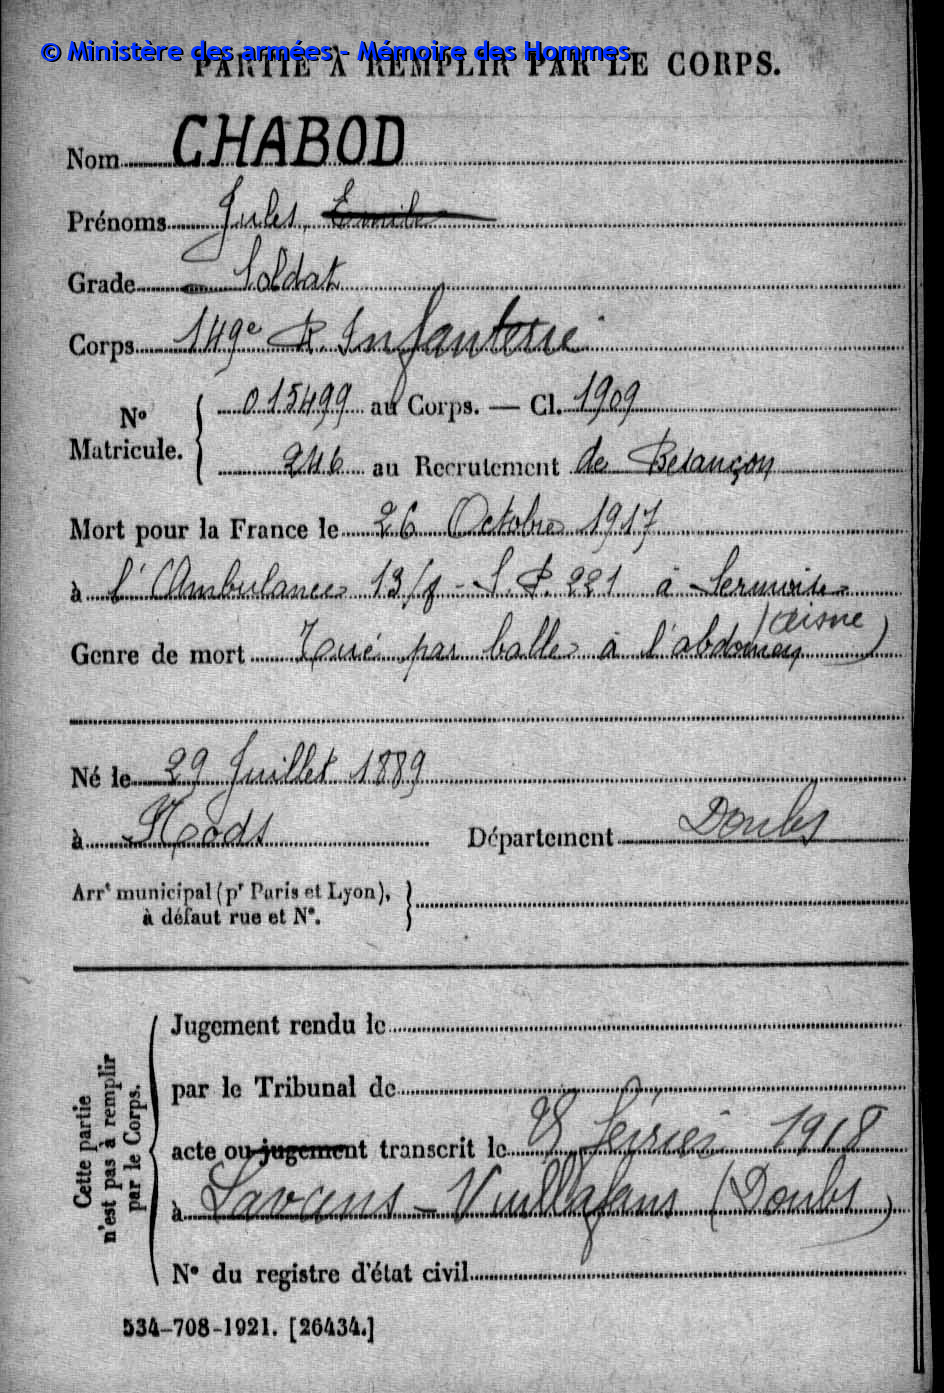 © Ministère des armées - Mémoire des Hommes
PARTIE À REMPLIR PAR LE CORPS.
Nom CHABOD
Prénoms Jules, Emile
Grade Soldat
Corps 149e R. Infanterie
Nº Matricule. { 015499 au Corps. — Cl. 1909
246 au Recrutement de Besançon
Mort pour la France le 26 Octobre 1917
à l'Ambulance 13/ - S.P. 221 à Sermoise
(Aisne)
Genre de mort Tué par balle à l'abdomen
Né le 29 Juillet 1889
à Nods Département Doubs
Arrt municipal (pr Paris et Lyon), }
à défaut rue et Nº.
Cette partie n'est pas à remplir par le Corps.
Jugement rendu le
par le Tribunal de
acte ou jugement transcrit le 28 février 1918
à Lavans - Vuillafans (Doubs)
Nº du registre d'état civil
534-708-1921. [26434.]